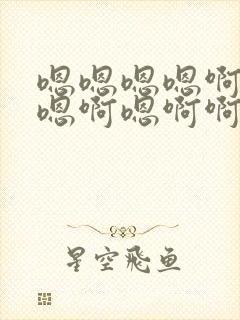 嗯嗯嗯嗯啊
嗯啊嗯啊啊
星空飛鱼